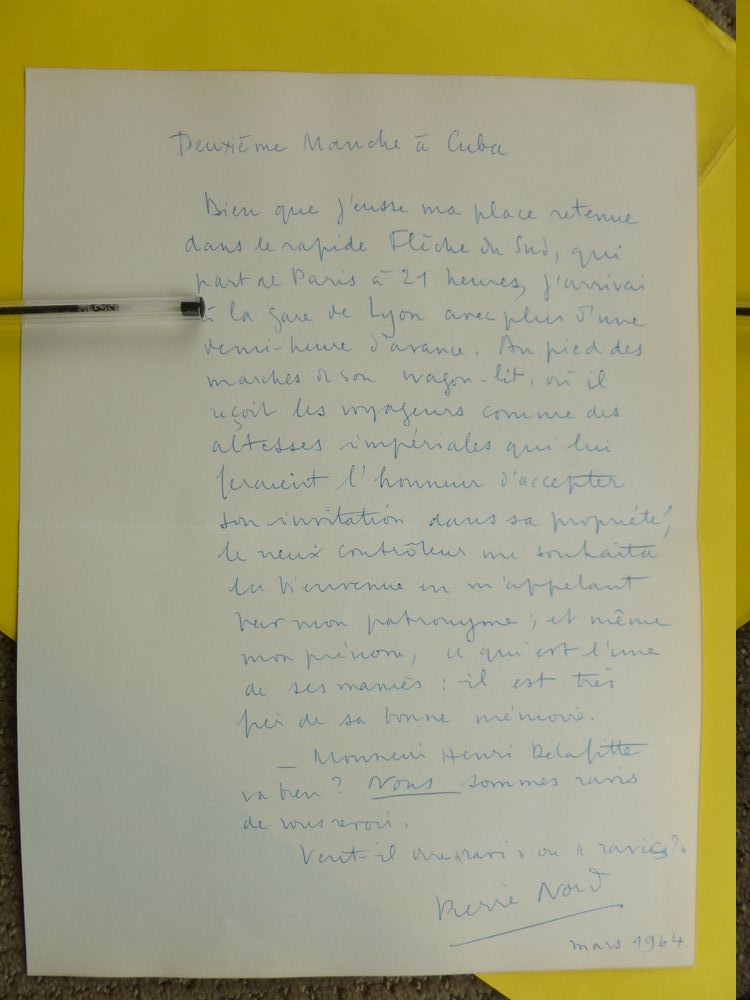 Deuxième Manche à Cuba
Bien que j'eusse ma place retenue
dans le rapide Flèche du Sud, qui
part de Paris à 21 heures, j'arrivai
à la gare de Lyon avec plus d'une
demi-heure d'avance. Au pied des
marches de son wagon-lit, où il
reçoit les voyageurs comme des
altesses impériales qui lui
feraient l'honneur d'accepter
son invitation dans sa propriété,
le vieux contrôleur me souhaita
la bienvenue en m'appelant
par mon patronyme ; et même
mon prénom, ce qui est l'une
de ses manies : il est très
fier de sa bonne mémoire.
— Monsieur Henri Delafitte
va bien ? Nous sommes ravis
de vous revoir.
Veut-il dire « ravi » ou « ravis ? »
Pierre Nord
mars 1964.